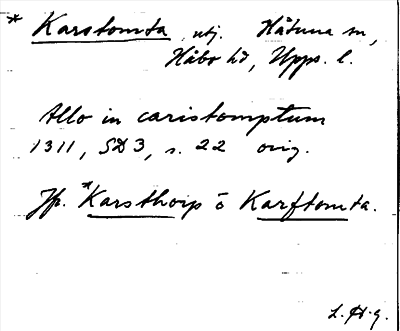 * Karstomta, utj. Håtuna sn,
Håbo hd, Upps. l.
Allo in caristomptum
1311, SD3, s. 22 orig.
Jfr. *Karsthorp o Karftomta.
L. H-g.